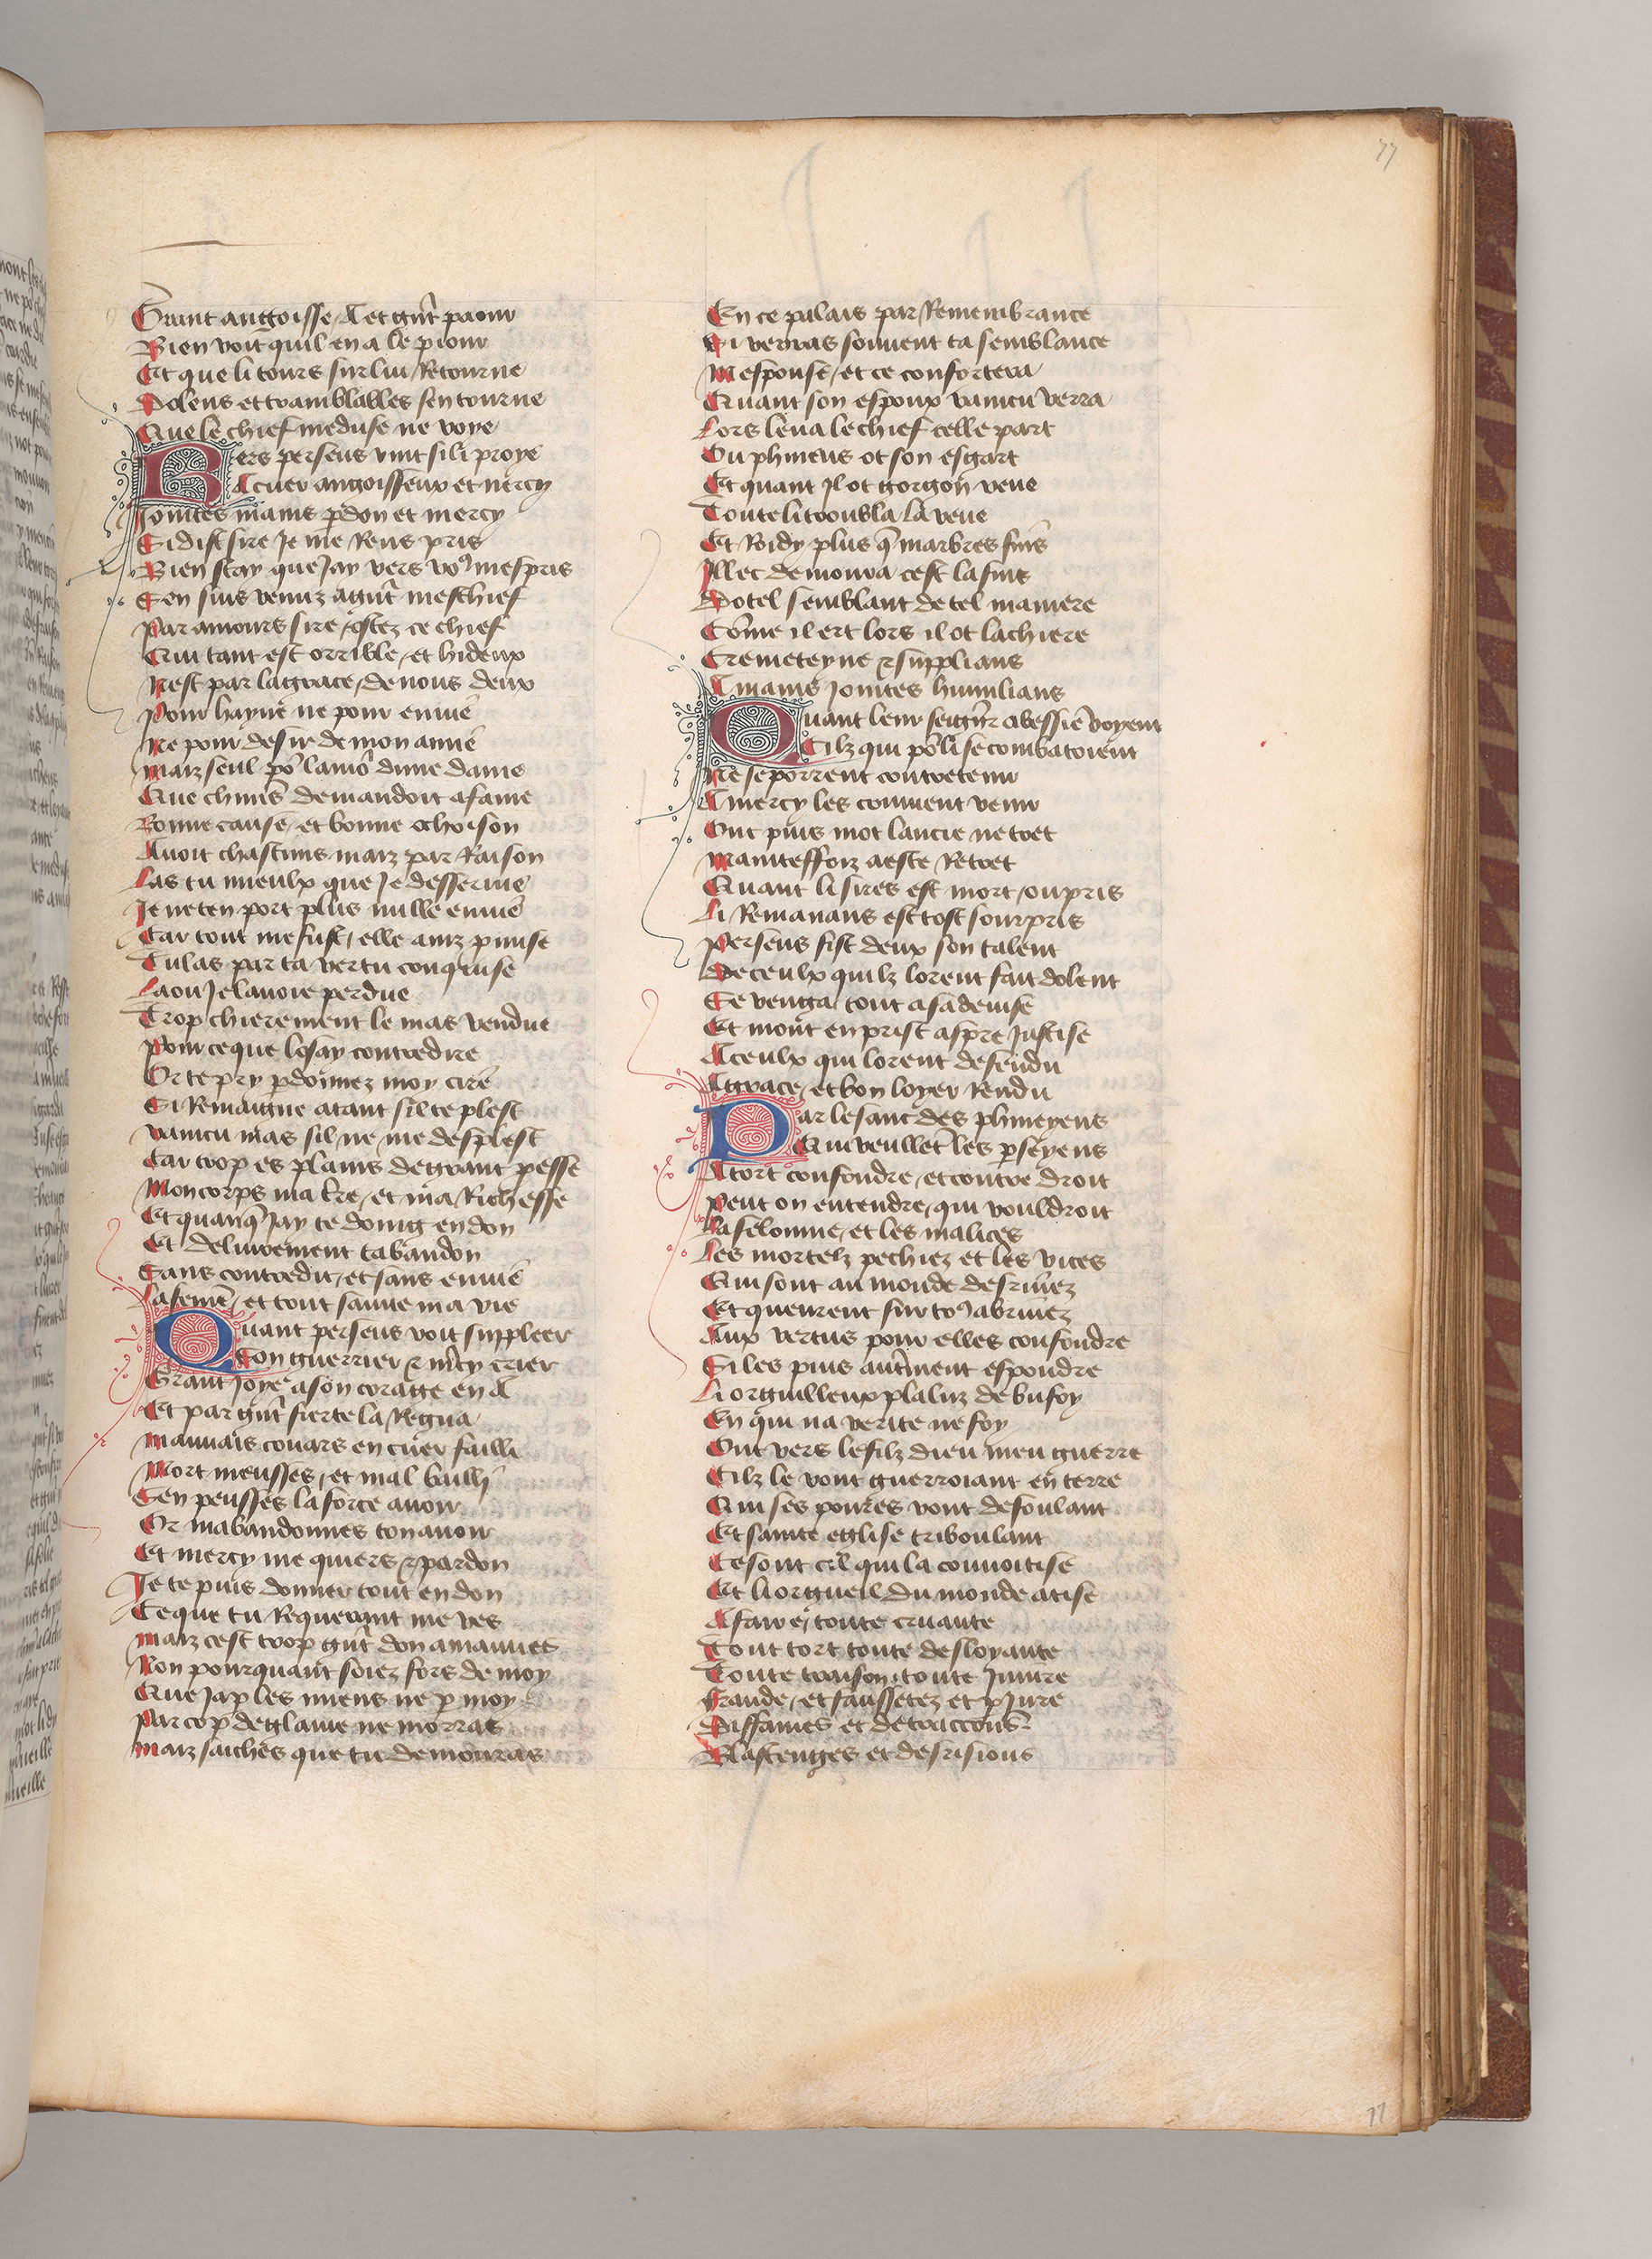 77
Grant angoisse A et gñt paour
Bien voit quil en a le piour
Et que li tours sur lui Retourne
Dolens et tramblables sen tourne
Que le chief meduse ne voye
Vers perseus vint si li proye
A cuer angoisseux et nercy
Jointes mains pdon et mercy
Si dist sire Je me Rens pris
Bien scay que Jay vers vo9 mespris
Sen suis venuz a gñt meschief
Par amours sire ostez ce chief
Qui tant est orrible et hideux
Nest par la grace de nous deux
Pour hayne ne pour enuie
Ne pour desir de mon amie
Maiz seul po² lamo² dune dame
Que chũns demandoit a fame
Bonne cause et bonne ochoison
Auoit chascuns maiz par Raison
Las tu mieulx que Je desseruie
Je ne ten port plus nulle enuie
Car tout me fust elle ainz pmise
Tu las par ta vertu conquise
La ou Je lauoie perdue
Trop chierement le mas vendue
Pour ce que losay contredire
Or te pry pdonnez moy cire
Si Remaigne atant sil te plest
Vaincu mas sil ne me desplest
Car trop es plains de grant presse
Mon corps ma tre et ma Richesse
Et quanq̃ Jay te doing en don
Et deliurement tabandon
Sans contredit et sans enuie
La feme et tout sauue ma vie
Quant perseus voit suppleer
Son guerrier & mcy crier
Grant Joye a son corage en A
Et par gñt fierte la Regna
Mauuais couars en cuer failli
Mort meusses et mal bailli
Sen peusses la force auoir
Or mabandonnes ton auoir
Et mercy me quiers & pardon
Je te puis donner tout en don
Ce que tu Requerant me ves
Maiz cest trop gñt don a mauues
Non pourquant soiez fors de moy
Que Ja p les miens ne p moy
Par cop de glaiue ne morras
Maiz saiches que tu demouras
En ce palais par Remembrance
Si verras souuent ta semblance
Mespouse et ce confortera
Quant son espoux vaincu verra
Lors leua le chief celle part
Ou phineus ot son esgart
Et quant Jl ot gorgon veue
Toute li troubla la veue
Et Roidy plus q̃ marbres fins
Jllec demoura cest la fins
Dotel semblant de tel maniere
Cõme il ert lors il ot la chiere
Cremeteyne & supplians
A mains Jointes humilians
Quant leur seigñr abessie voyent
Cilz qui po² li se combatoient
Ne se porrent contretenir
A mercy les conuent venir
Ont puis mot lancie ne tret
Maint effoiz a este Retret
Quant li sires est mort ou pris
Li Remanans est tost sourpris
Perseus fist deux son talent
De ceulx quilz lorent fait dolent
Se venga tout a sa deuise
Et mout en prist aspre Justise
A ceulx qui lorent defendu
A grace et bon loyer Rendu
Par lesant des phineyens
Qui veullet les pseyens
A tort confondre et contre droit
Peut on entendre qui vouldroit
La felonnie et les malices
Les mortelz pechiez et les vices
Qui sont au monde desriuez
Et queurent sur to9 abriuez
Aux vertus pour elles confondre
Si les puis autment espondre
Li orguilleux plaluz de bufoy
En qui na verite ne foy
Ont vers le filz dieu meu guerre
Cilz le vont guerroiant en terre
Qui ses poures vont defoulant
Et sainte eglise triboulant
Ce sont cil qui la conuoitise
Et li orgueil du monde atise
A faire toute cruaute
Tout tort toute desloyaute
Toute traison toute Jniure
Fraude et faussetez et pJure
Diffames et detraccons
Blastenges et desrisions
77